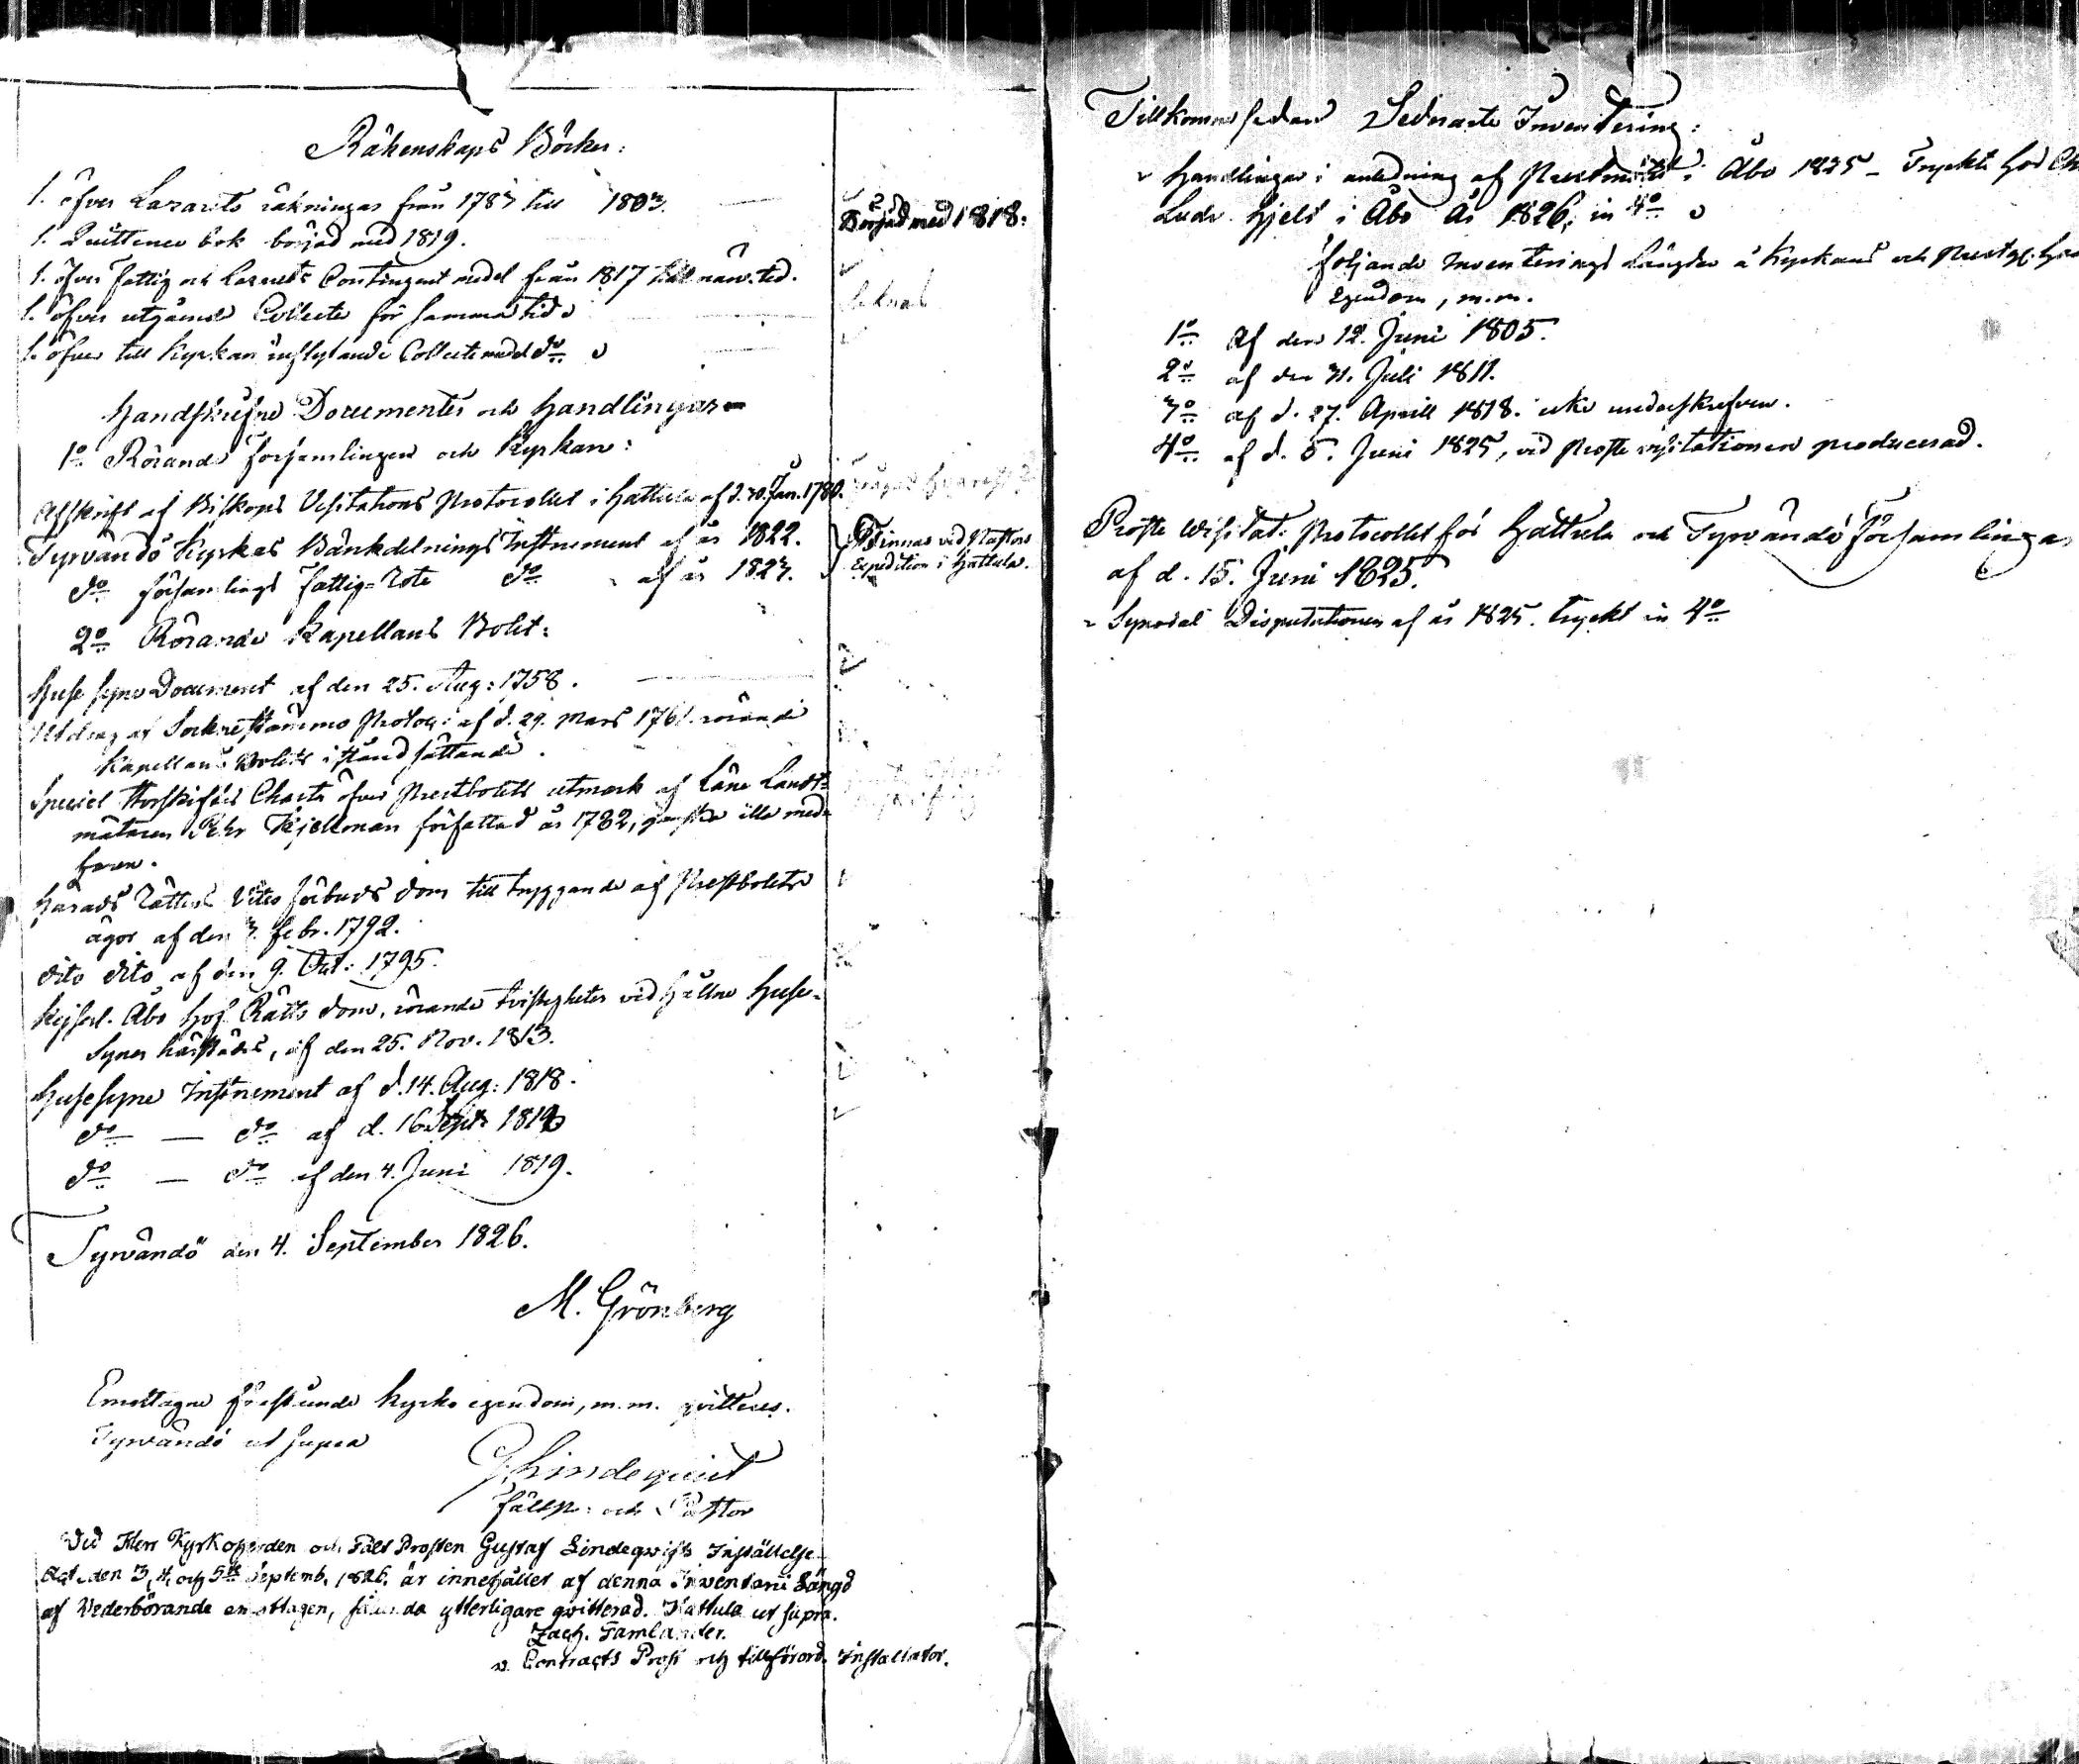 Räkenskaps Böcker:
1. öfver Lazaretts räkningar från 1783 till 1803.
1. Quittence bok börjad med 1819.
Börjad med 1818:
1. öfver fattig och Lazaretts Contingent medel från 1817 till närv. tid.
1. öfver utgående Collecter för samma tid
1. öfver till Kyrkan inflytande Collectmedel do
Handskrefne Documenter och Handlingar
1o Rörande församlingen och Kyrkan:
Afskrift af Biskops Visitations Protocollet i Hattula af d. 30. Jan. 1780.
Tyrvändö Kyrkas Bänkdelnings Instrument af år 1822.
do församlings fattig-Rote do af år 1823.
Finnas vid Pastors
Expedition i Hattula.
2o Rörande Kapellans Bolet:
Huse syns Document af den 25. Aug: 1758.
Utdrag af Sockne stämmo Protoc: af d. 29. Mars 1761. rörande
Kapellans Bolets i stånd sättande.
Speciel Storskifts Charta öfver Prestbolets utmark af Läne Landt-
mätaren Pehr Kjellman författad år 1782, ganska illa med-
faren.
Härads Rättens Vites förbuds dom till tryggande af Prestbolets
ägor af den 3. Febr. 1792.
dito dito af den 9. Oct: 1795.
Kejserl. Åbo Hof Rätts dom, rörande tvistigheter vid hållne Huse-
Syner härstädes, af den 25. Nov. 1813.
Husesyns Instrument af d. 14. Aug: 1818.
do — do af d. 16 Sept.
do — do af den 4. Juni 1819.
Tyrvändö den 4. September 1826.
M. Grönberg
Emottagne förestående Kyrko egendom, m.m. qvitteres.
Tyrvändö ut supra
G. Lindequist
fältpr: och Pastor
Vid Herr Kyrkoherden och Fält Prosten Gustaf Lindeqvists Inställelse
Act den 3, 4, och 5te Septemb. 1826. är innehållet af denna Inventarii Längd
af Vederbörande emottagen, sålunda ytterligare qvitterad. Hattula ut supra.
Zach. Tamlander.
v. Contracts Prost och tillförord. Installator.
Tillkomne sedan Sednaste Inventering:
Handlingar i anledning af Prestmötet i Åbo 1825 - Tryckt hos Ch
Ludv. Hjelt i Åbo År 1826, in 4o
följande Inventerings Längder å Kyrkans och
Egendom, m.m.
1o af den 12. Juni 1805.
2o af den 31. Juli 1811.
3o af d. 27. Aprill 1818. icke underskrefven.
4o af d. 5. Juni 1825, vid Proste visitationen producerad.
Proste Visitat: Protocollet för Hattula och Tyrvändö Församlingar
af d. 15. Juni 1825.
Synodal Disputationen af år 1825. tryckt in 4o